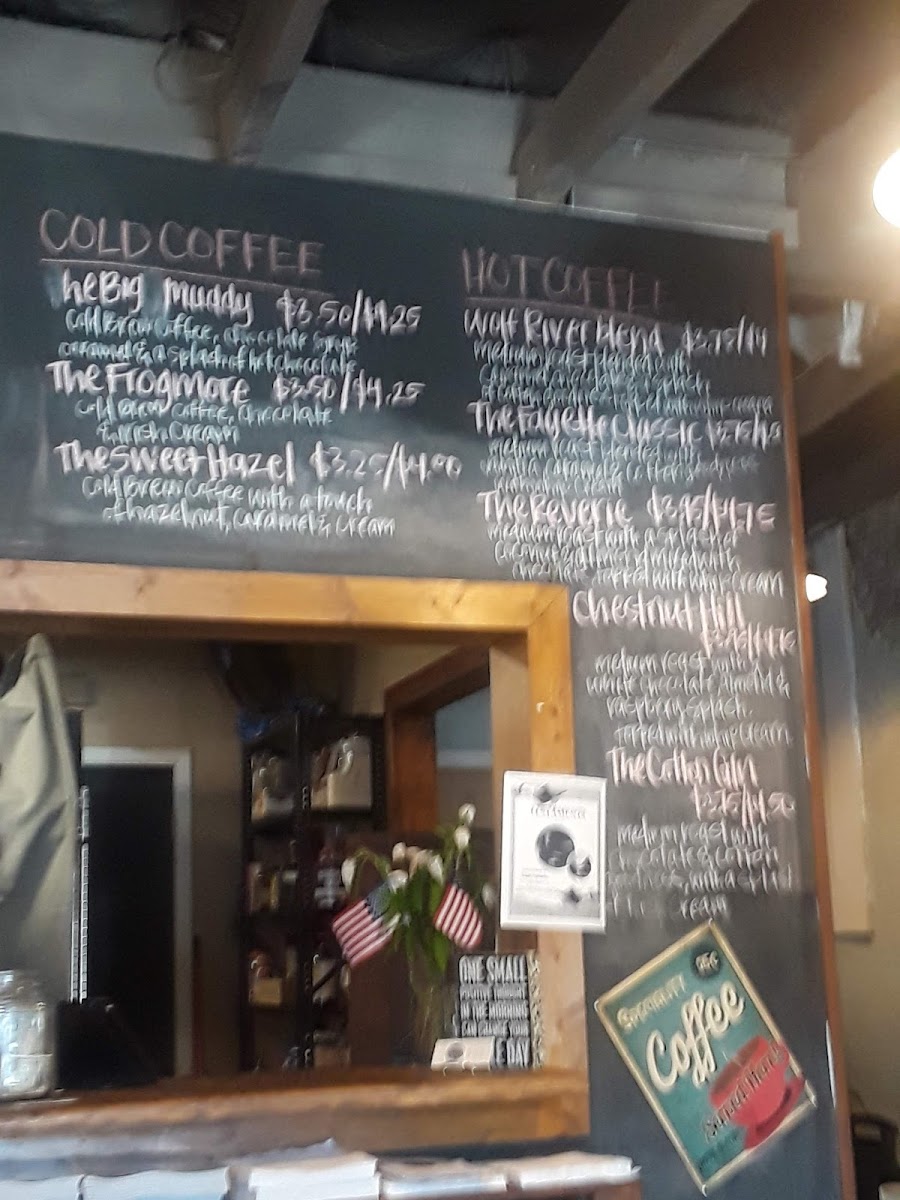 COLD COFFEE
he Big Muddy $3.50/$4.25
Cold Brew Coffee, chocolate
caramel & a splash of hot chocolate
The Frogmore $3.50/$4.25
Cold Brew Coffee, Chocolate
& Irish Cream
The Sweet Hazel $3.25/$4.00
Cold Brew Coffee with a touch
of hazelnut, caramel & cream
HOT COFFEE
Wolf River Blend $3.75/$4
medium roast blended with
The Fayette Classic
medium roast blended with
vanilla, caramel &
The Reverie $3.95/$4.75
medium roast with a splash of
coconut mixed with
topped with whip cream
Chestnut Hill
medium roast with
white chocolate, almond &
raspberry splash.
topped with whip cream
The Cotton Gin
$3.75/$4.50
medium roast with
chocolate & cotton
with a splash
cream
ONE SMALL
POSITIVE THOUGHT
IN THE MORNING
CAN CHANGE YOUR
E DAY
SPECIALITY
Coffee
Served Here